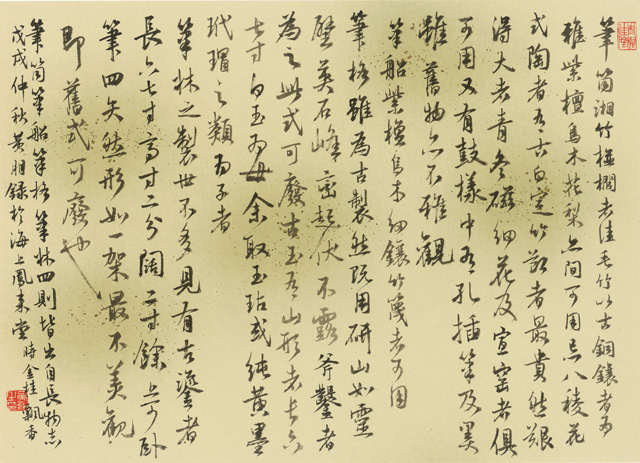 筆筒湘竹栟櫚者佳毛竹以古銅鑲者為
雅紫檀烏木花梨亦間可用忌八稜花
式陶者有古白定竹節者最貴然艱
得大者青冬磁細花及宣窯者俱
可用又有鼓樣中有孔插筆及墨
雖舊物亦不雅觀
筆船紫檀烏木細鑲竹篾者可用
筆格雖為古製然既用研山如靈
壁英石峰巒起伏不露斧鑿者
為之此式可廢古玉有山形者長六
七寸白玉為母余取玉玷或純黃墨
玳瑁之類為子者
筆牀之製世不多見有古鎏者
長六七寸高寸二分闊二寸餘上可臥
筆四矢然形如一架最不美觀
即舊式可廢也
筆筒筆船筆格筆牀四則皆出自長物志
戊戌仲秋黃錄於海上鳳來堂時金桂飄香